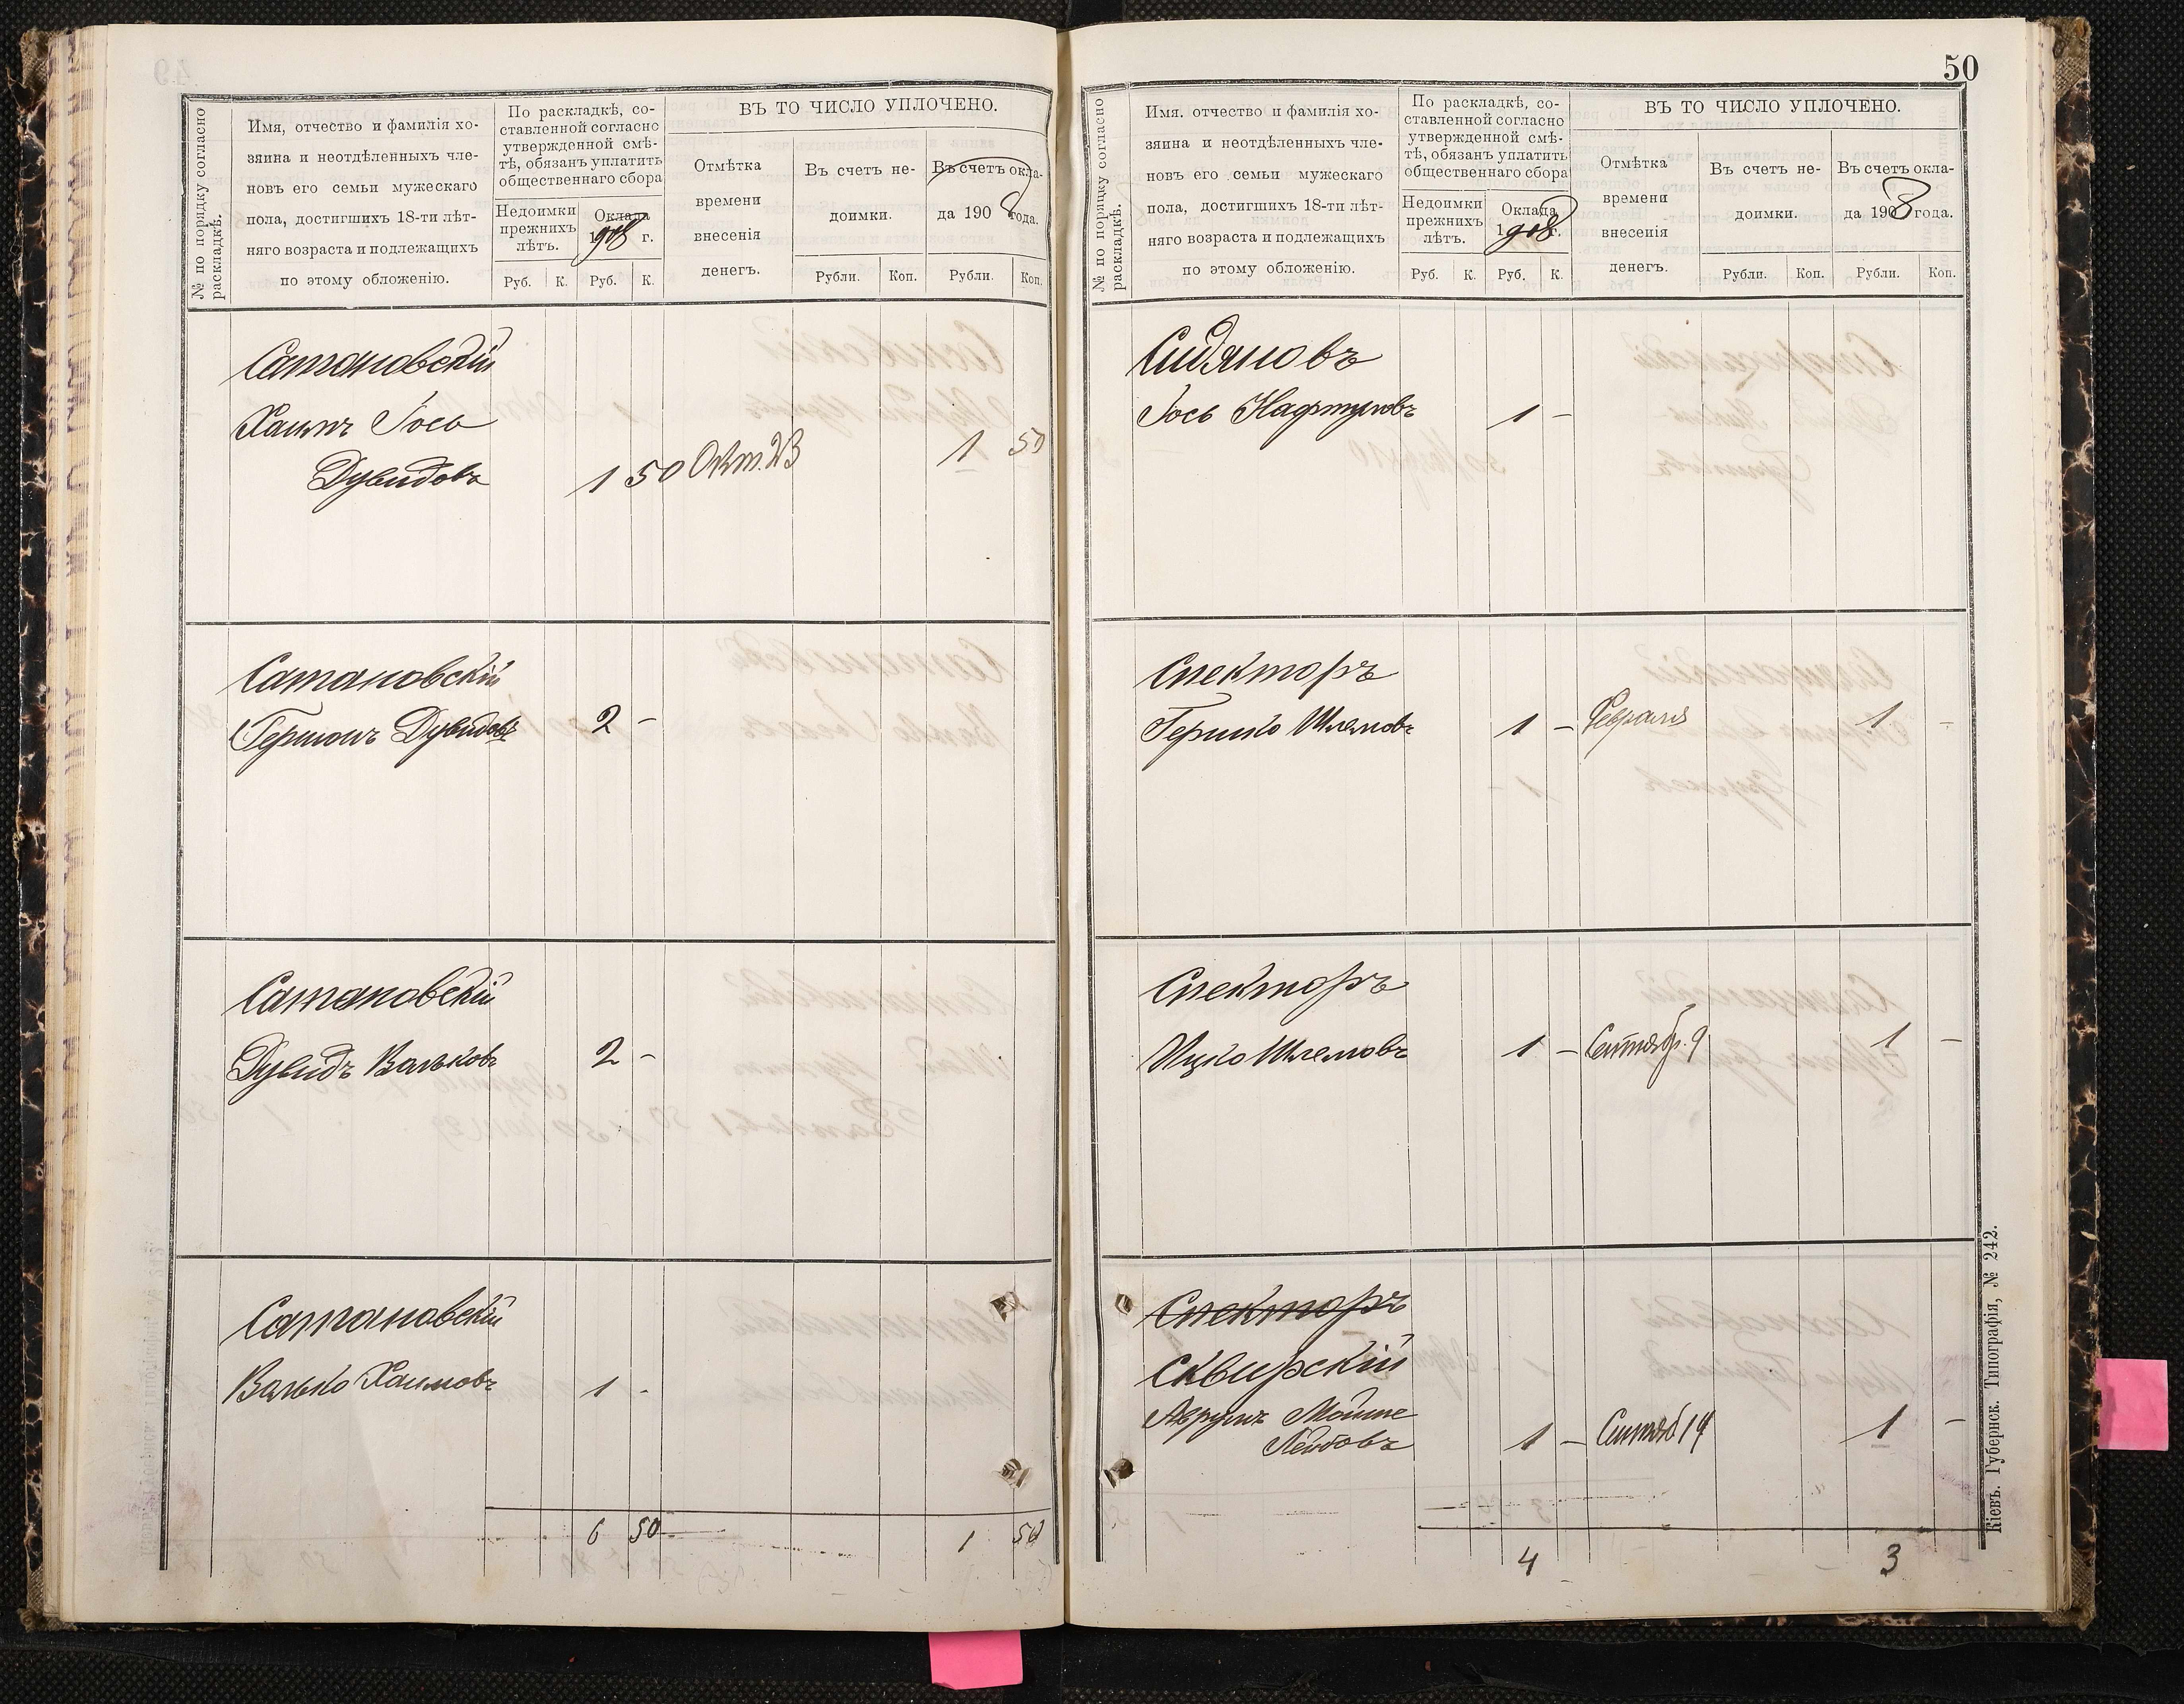 № по порядку согласно
раскладкѣ.
Имя, отчество и фамилія хо-
зяина и неотдѣленныхъ чле-
новъ его семьи мужескаго
пола, достигшихъ 18-ти лѣт-
няго возраста и подлежащихъ
по этому обложенію.
По раскладкѣ, со-
ставленной согласно
утвержденной смѣ-
тѣ, обязанъ уплатить
общественнаго сбора
Недоимки
прежнихъ
лѣтъ.
Оклада
1908 г.
Руб. К. Руб. К.
ВЪ ТО ЧИСЛО УПЛОЧЕНО.
Отмѣтка
времени
внесенія
денегъ.
Въ счетъ не-
доимки.
Рубли. Коп.
Въ счетъ окла-
да 1908 года.
Рубли. Коп.
Сатановскій
Хаимъ Іось
Дувидовъ 1 50 Окт. 23 1 50
Сатановскій
Гершонъ Дувидовъ 2 -
Сатановскій
Дувидъ Вальковъ 2 -
Сатановскій
Валько Хаимовъ 1 -
6 50 1 50
50
№ по порядку согласно
раскладкѣ.
Имя. отчество и фамилія хо-
зяина и неотдѣленныхъ чле-
новъ его семьи мужескаго
пола, достигшихъ 18-ти лѣт-
няго возраста и подлежащихъ
по этому обложенію.
По раскладкѣ, со-
ставленной согласно
утвержденной смѣ-
тѣ, обязанъ уплатить
общественнаго сбора
Недоимки
прежнихъ
лѣтъ.
Оклада
1908 г.
Руб. К. Руб. К.
ВЪ ТО ЧИСЛО УПЛОЧЕНО.
Отмѣтка
времени
внесенія
денегъ.
Въ счетъ не-
доимки.
Рубли. Коп.
Въ счетъ окла-
да 1908 года.
Рубли. Коп.
Сидяновъ
Іось Нафтуловъ 1 -
Спекторъ
Гершко Шлемовъ 1 - Февраля 1 -
Спекторъ
Ицко Шлемовъ 1 - Сентябр. 9 1 -
Спекторъ
Сквирскій
Аврумъ Мойше
Лейбовъ 1 - Сентяб 19 1 -
4 3
Кіевъ. Губернск. Типографія, № 242.